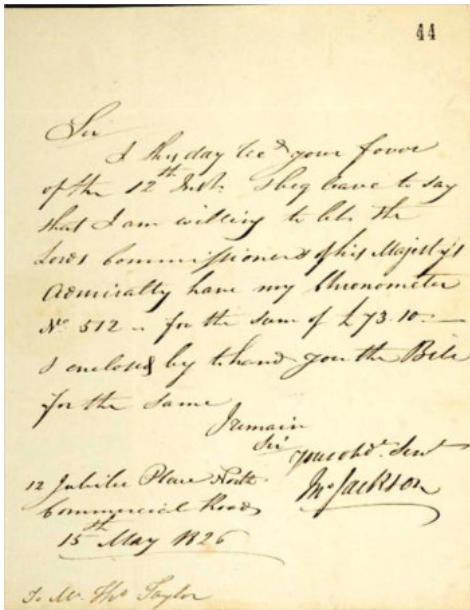 44
Sir
I this day rec^d your favor
of the 12th Inst. I beg leave to say
that I am willing to let the
Lords Commissioners of his Majesty's
Admiralty have my Chronometer
No 512 - for the sum of £73.10.-
I enclosed by to hand you the Bill
for the same
I remain
Sir
your obd^t. Serv^t
Jno Jackson
12 Jubilee Place North
Commercial Road
15th May 1826
To Mr. Thos Taylor